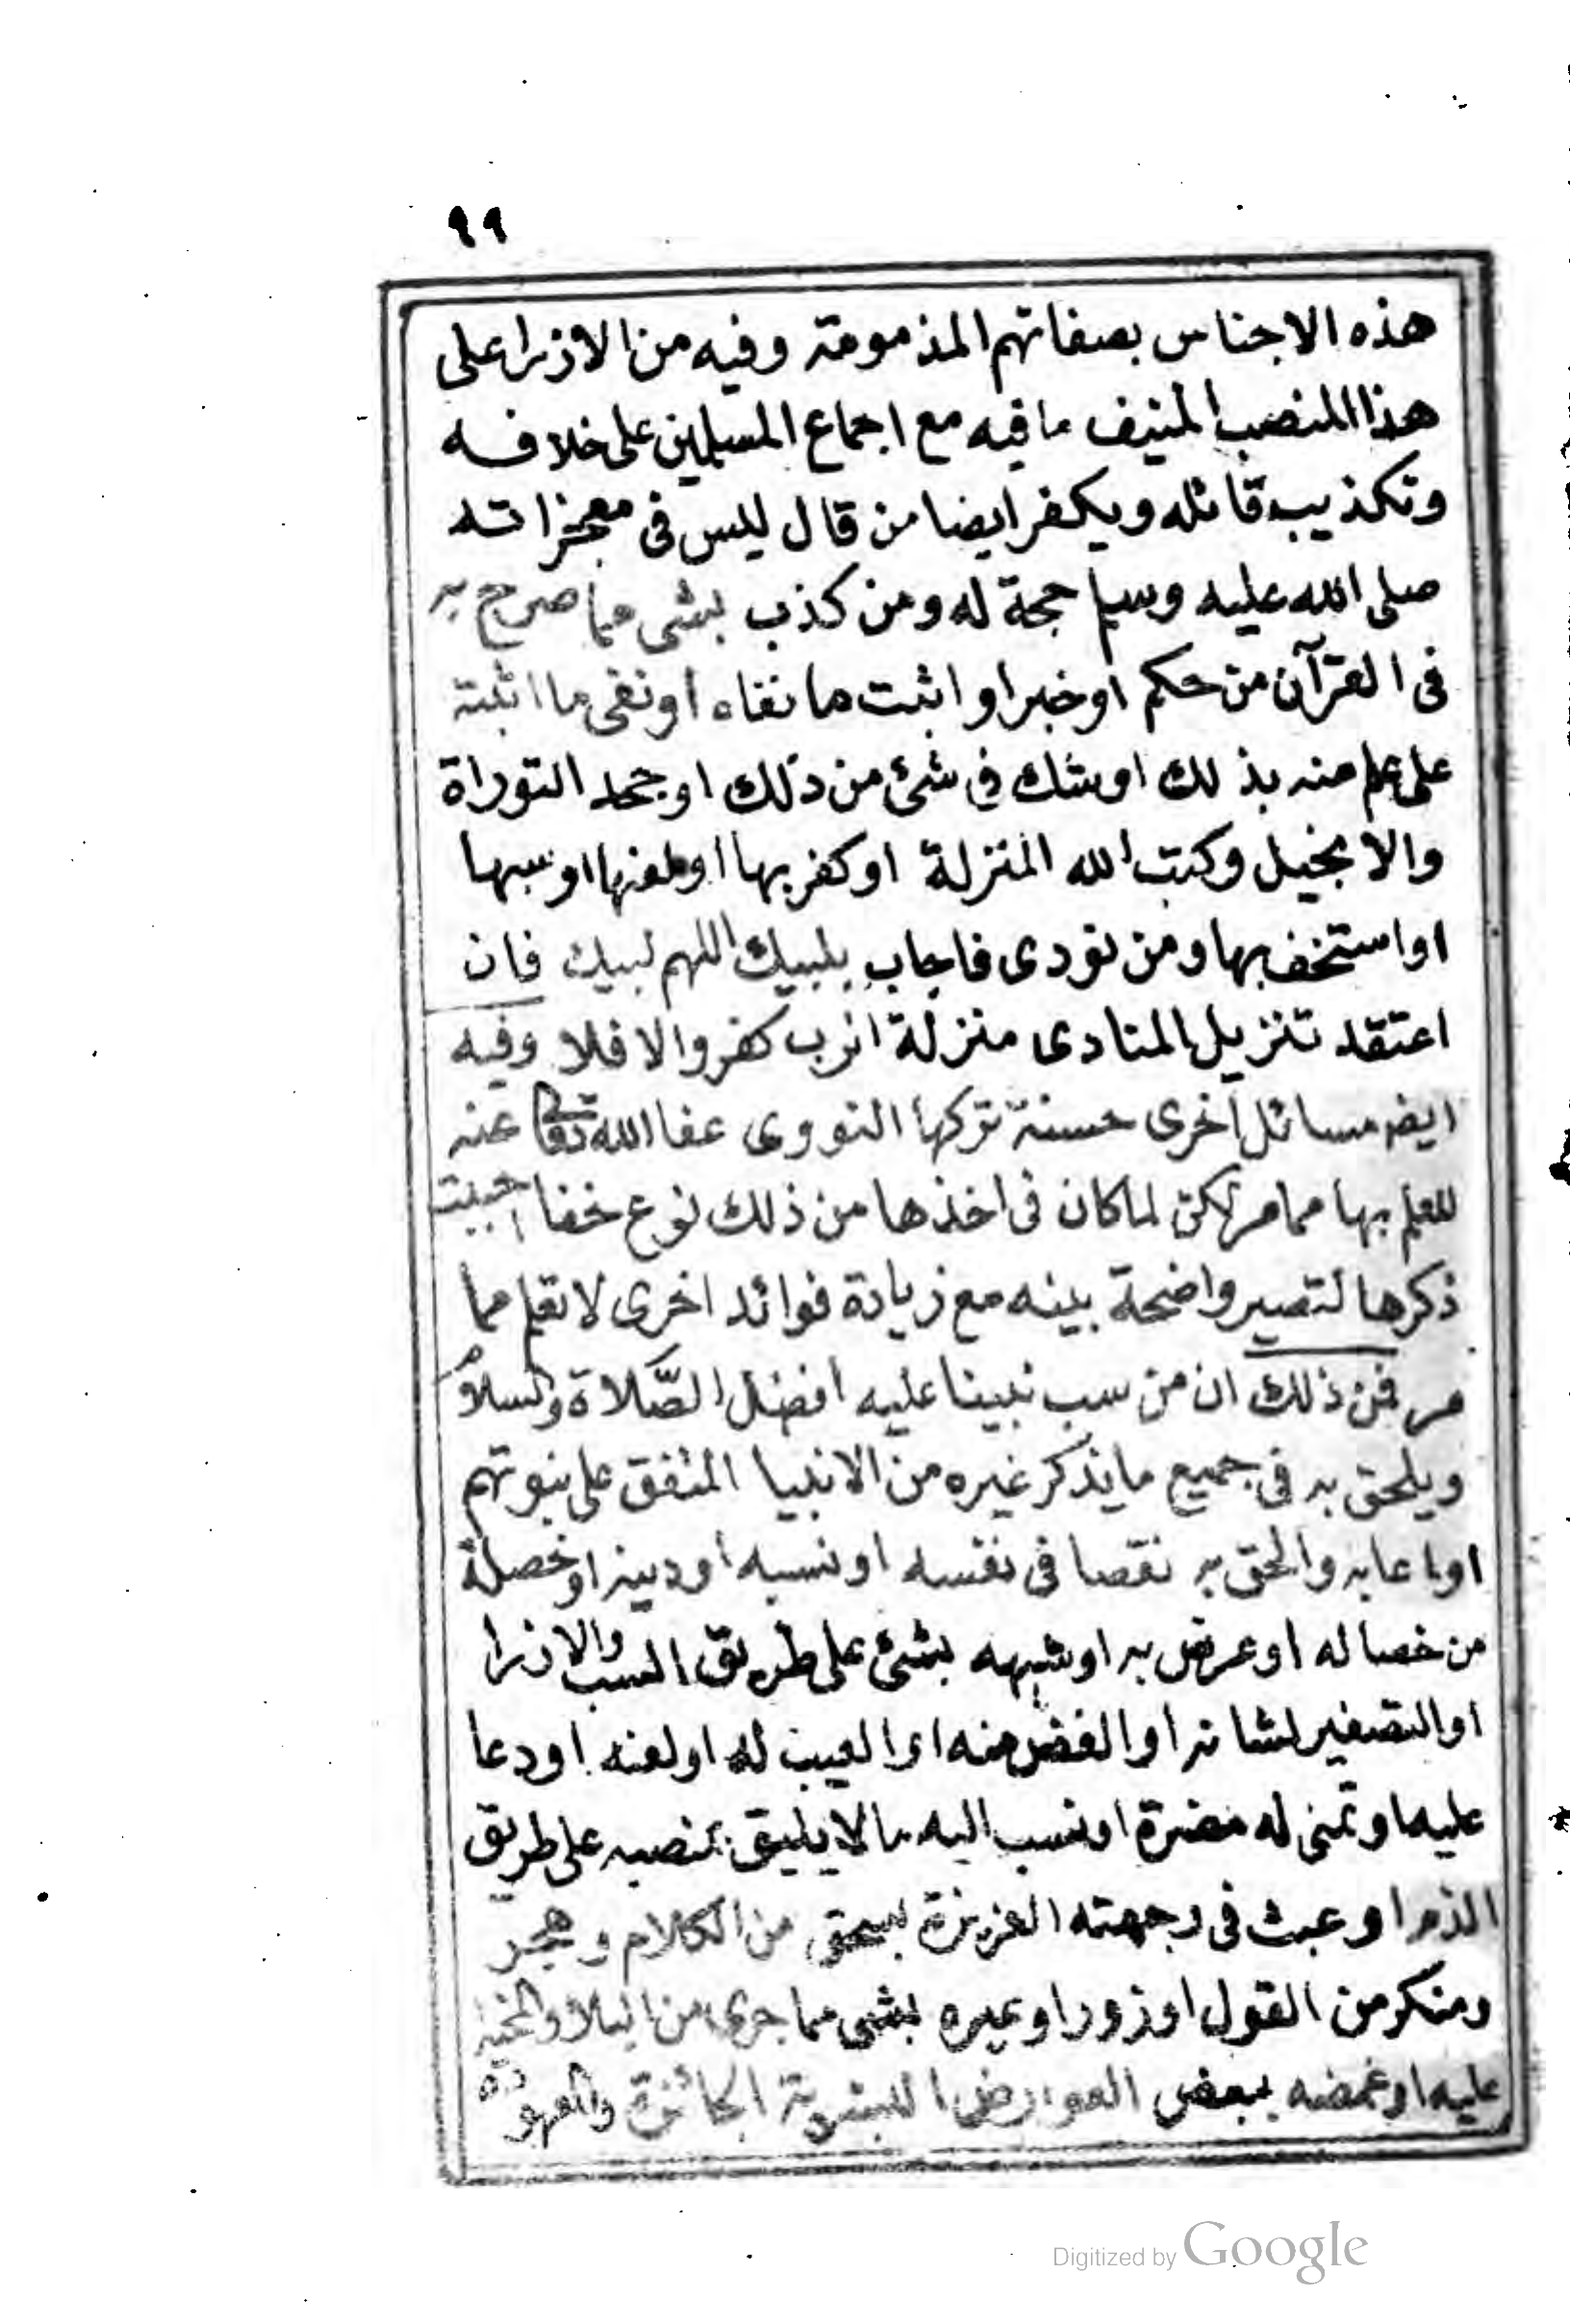 ٩٩
هذه الاجناس بصفاتهم المذمومة وفيه من الازرا على
هذا المنصب المنيف ما فيه مع اجماع المسلمين على خلافه
وتكذيب قائله ويكفر ايضا من قال ليس فى معجزاته
صلى الله عليه وسلم حجة له ومن كذب بشى مما صرح به
فى القرآن من حكم او خبر او اثبت ما نفاه او نفى ما اثبته
على علم منه بذلك او شك فى شئ من ذلك او جحد التوراة
والانجيل وكتب الله المنزلة او كفر بها او لعنها او سبها
او استخف بها ومن نودى فاجاب بلبيك اللهم لبيك فان
اعتقد تنزيل المنادى منزلة الرب كفر والا فلا وفيه
ايضه مسائل اخرى حسنة تركها النووى عفا الله تعالى عنه
للعلم بها مما مر لكن لما كان فى اخذها من ذلك نوع خفا احببت
ذكرها لتصير واضحة بينه مع زيادة فوائد اخرى لا تعلم مما
مر فمن ذلك ان من سب نبينا عليه افضل الصَّلاة والسلام
ويلحق به فى جميع ما يذكر غيره من الانبيا المتفق على نبوتهم
او ما عابه والحق به نقصا فى نفسه او نسبه او دينه او خصلة
من خصاله او عرض به او شبهه بشئ على طريق السب والازرا
او التصغير لشانه او الغض منه او العيب له او لعنه او دعا
عليه او تمنى له مضرة او نسب اليه ما لا يليق بمنصبه على طريق
الذم او عبث فى جهته العزيزة بسحق من الكلام وهجر
ومنكر من القول او زور او عيره بشى مما جرى من البلا والمحنة
عليه او غمضه ببعض العوارض البشرية الجائزة والمعهودة
Digitized by Google